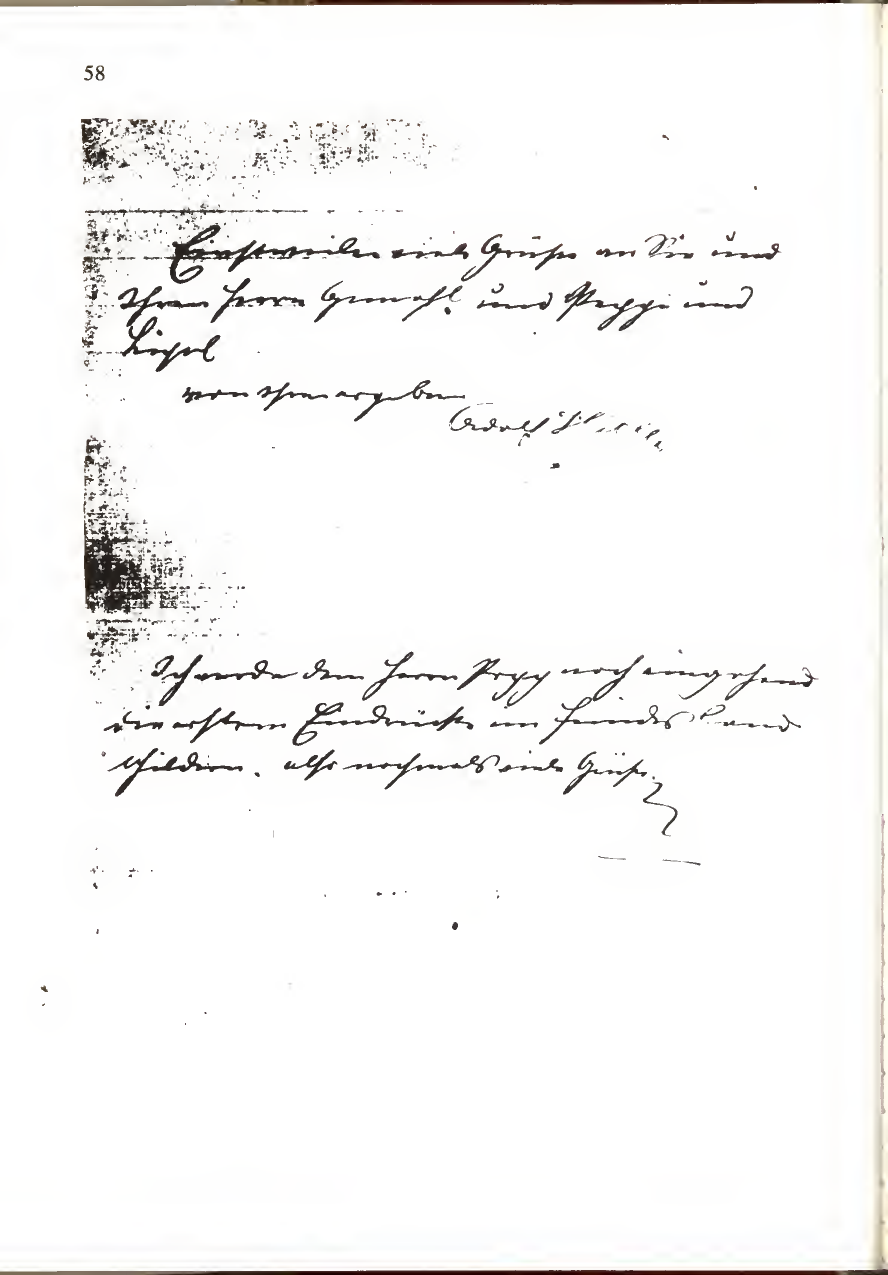 58
Einstweilen viele Grüße an Sie und
Ihren Herrn Gemahl und Peppi und
Liesel
von Ihrem ergeben
Adolf Hitler
Ich werde dem Herrn Popp noch eingehend
die ersten Eindrücke im Feindesland
schildern. Also nochmals viele Grüße.